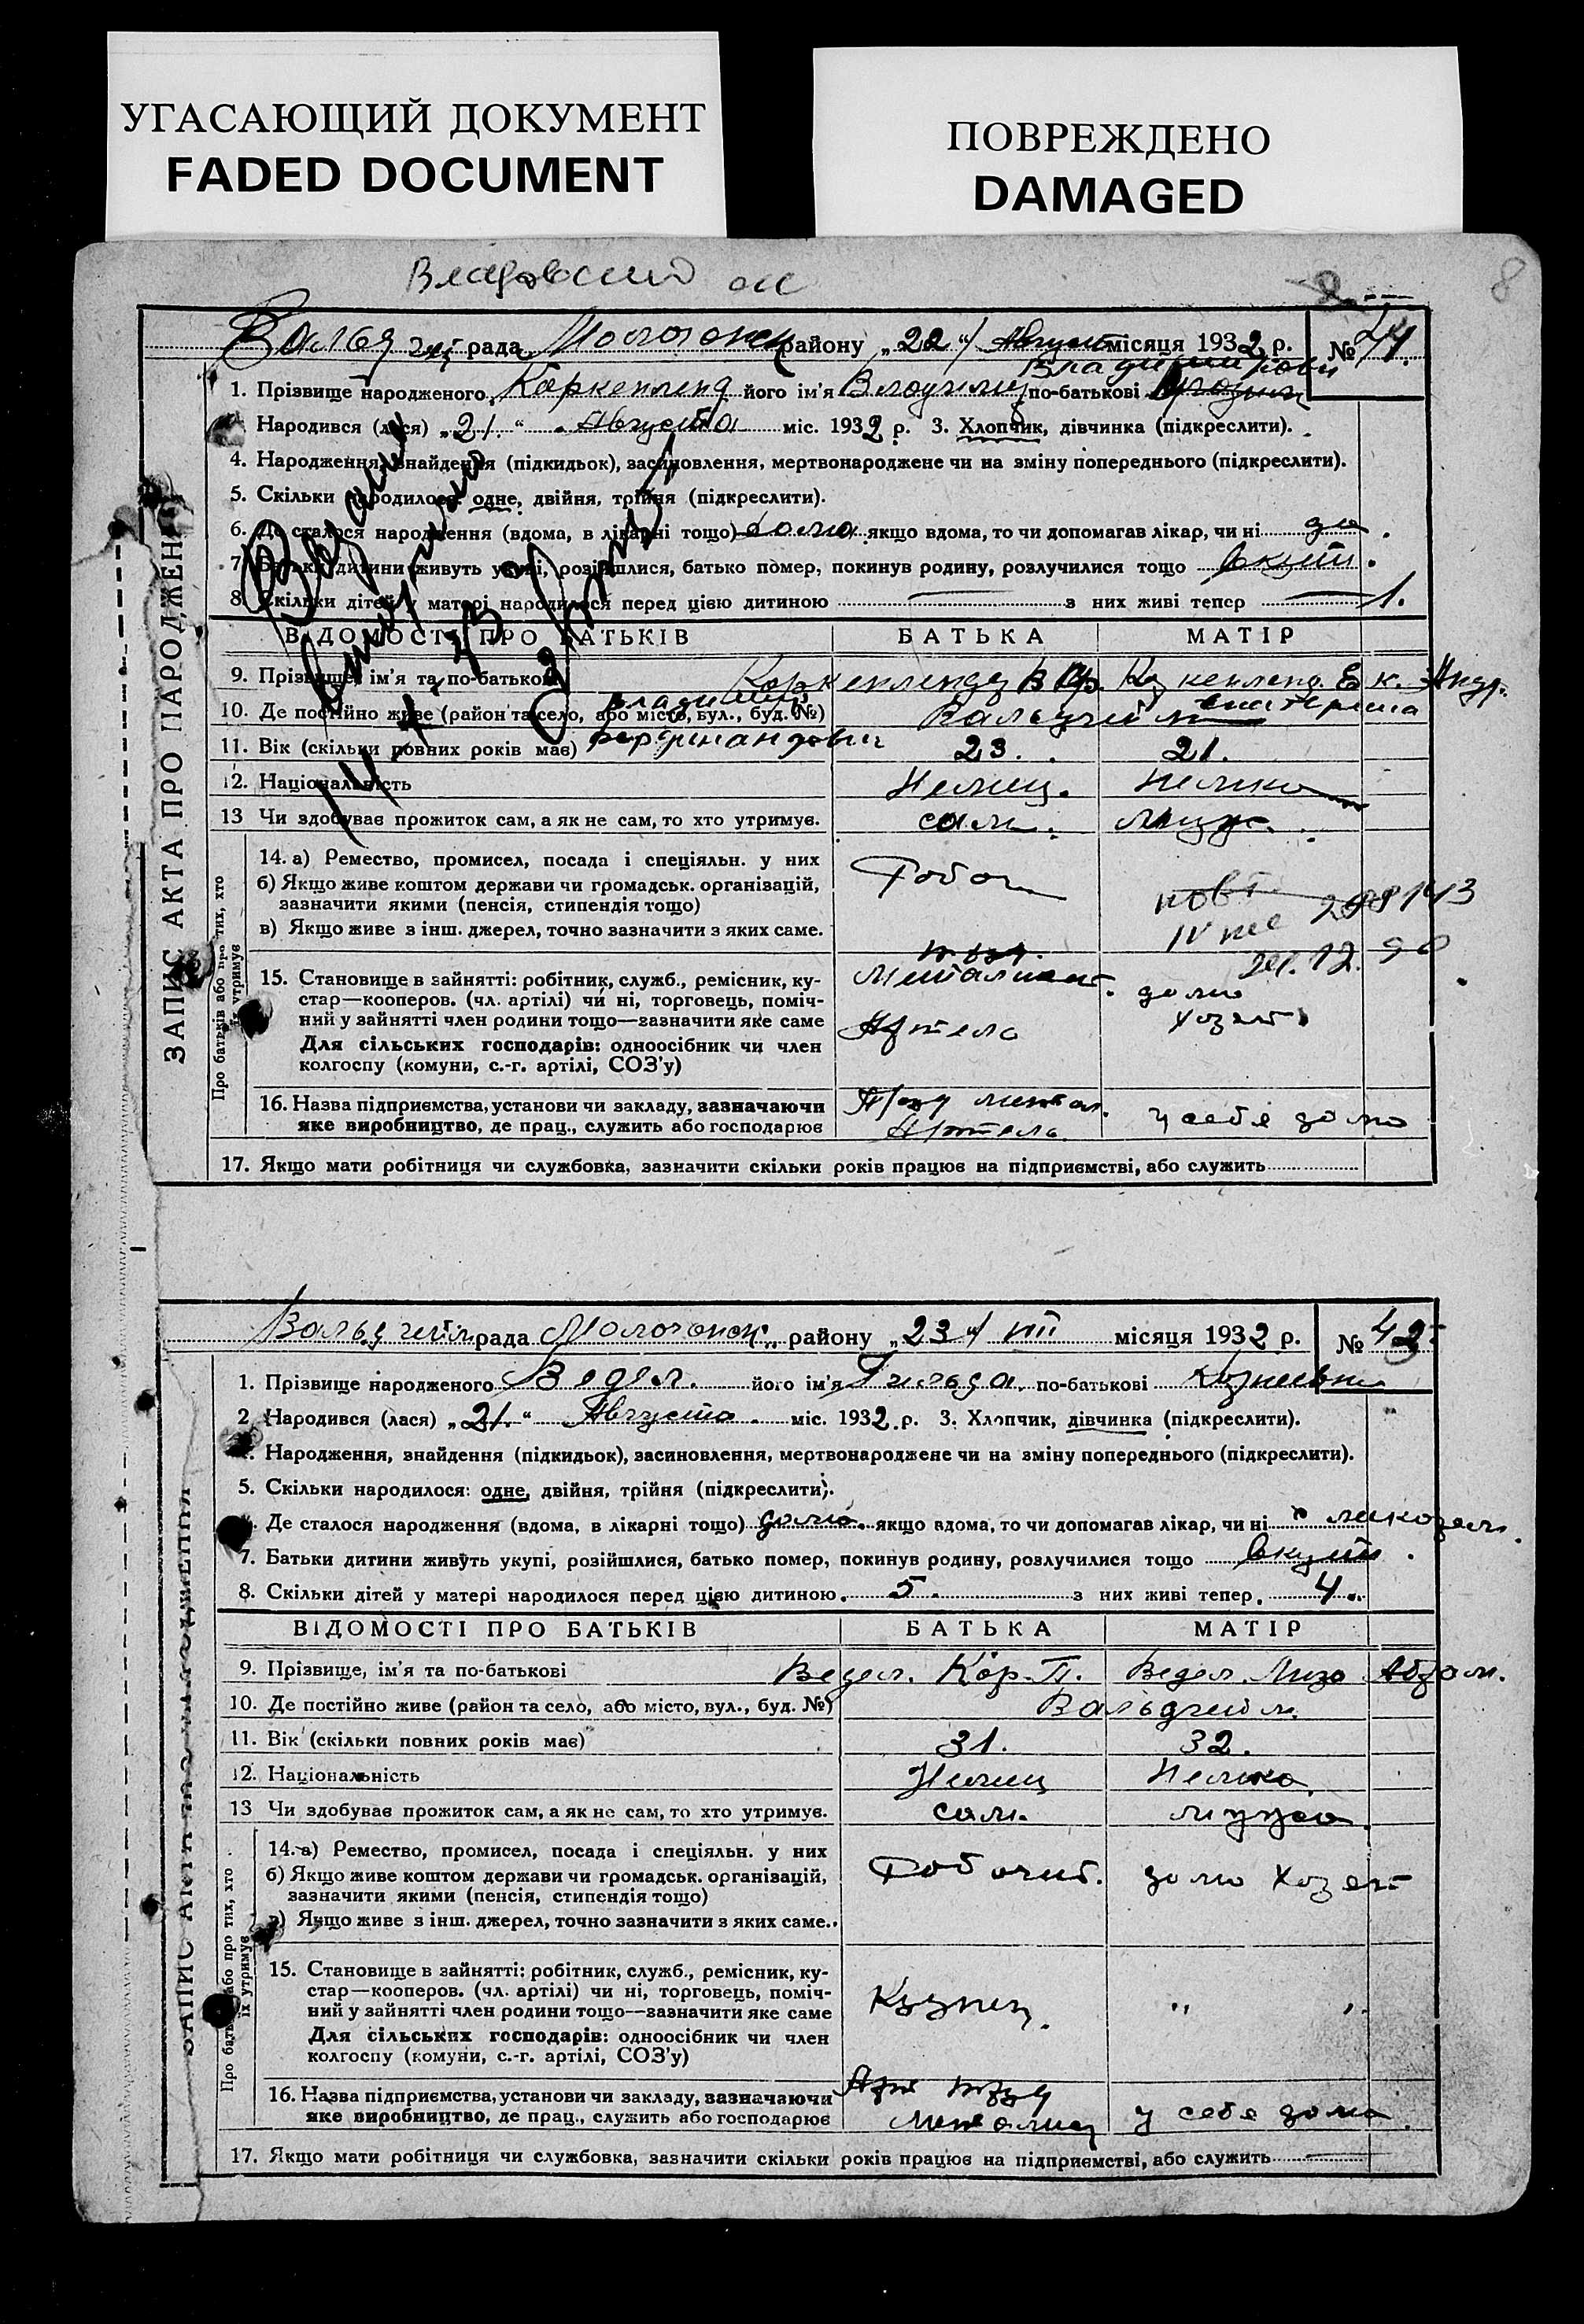 УГАСАЮЩИЙ ДОКУМЕНТ
FADED DOCUMENT
ПОВРЕЖДЕНО
DAMAGED
8
рада району „22“ Август місяця 1932 р. №
Владимирови
1. Прізвище народженого його ім'я по-батькові
Народився (лася) „21.“ Августа міс. 1932 р. 3. Хлопчик, дівчинка (підкреслити).
4. Народження, знайдення (підкидьок), засиновлення, мертвонароджене чи на зміну попереднього (підкреслити).
5. Скільки народилося: одне, двійня, трійня (підкреслити).
6. Де сталося народження (вдома, в лікарні тощо) дома якщо вдома, то чи допомагав лікар, чи ні да
7. Батьки дитини живуть укупі, розійшлися, батько помер, покинув родину, розлучилися тощо вкупи.
8. Скільки дітей у матері народилося перед цією дитиною — з них живі тепер — 1.
ВІДОМОСТІ ПРО БАТЬКІВ БАТЬКА МАТІР
9. Прізвище, ім'я та по-батькові Андр.
Владимир Екатерина
10. Де постійно живе (район та село, або місто, вул., буд. №) Вальдгейм
Фердинандович
11. Вік (скільки повних років має) 23. 21.
12. Національність Немец. Немка
13 Чи здобуває прожиток сам, а як не сам, то хто утримує. сам.
14. а) Ремество, промисел, посада і спеціяльн. у них
б) Якщо живе коштом держави чи громадськ. організацій,
зазначити якими (пенсія, стипендія тощо)
в) Якщо живе з інш. джерел, точно зазначити з яких саме.
Робоч.
15. Становище в зайнятті: робітник, служб., ремісник, ку-
стар—кооперов. (чл. артілі) чи ні, торговець, поміч-
ний у зайнятті член родини тощо—зазначити яке саме
Для сільських господарів: одноосібник чи член
колгоспу (комуни, с.-г. артілі, СОЗ'у)
Артель
домо
хозяй
16. Назва підприємства, установи чи закладу, зазначаючи
яке виробництво, де прац., служить або господарює
Артель
у себе дома
17. Якщо мати робітниця чи службовка, зазначити скільки років працює на підприємстві, або служить
ЗАПИС АКТА ПРО НАРОДЖЕННЯ
Про батьків або про тих, хто
їх утримує
Вальдгейм рада Молочанск. району „23“ VIII місяця 1932 р. № 42
1. Прізвище народженого Ведел. його ім'я Гильда. по-батькові
2. Народився (лася) „21.“ Августа. міс. 1932 р. 3. Хлопчик, дівчинка (підкреслити).
Народження, знайдення (підкидьок), засиновлення, мертвонароджене чи на зміну попереднього (підкреслити).
5. Скільки народилося: одне, двійня, трійня (підкреслити).
Де сталося народження (вдома, в лікарні тощо) дома. якщо вдома, то чи допомагав лікар, чи ні
7. Батьки дитини живуть укупі, розійшлися, батько помер, покинув родину, розлучилися тощо вкупи.
8. Скільки дітей у матері народилося перед цією дитиною. 5. з них живі тепер. 4.
ВІДОМОСТІ ПРО БАТЬКІВ БАТЬКА МАТІР
9. Прізвище, ім'я та по-батькові Ведел. Кор. П. Ведел. Лиза Абрам.
10. Де постійно живе (район та село, або місто, вул., буд. №) Вальдгейм.
11. Вік (скільки повних років має) 31. 32.
12. Національність Немец Немка
13 Чи здобуває прожиток сам, а як не сам, то хто утримує. сам. мужа
14. а) Ремество, промисел, посада і спеціяльн. у них
б) Якщо живе коштом держави чи громадськ. організацій,
зазначити якими (пенсія, стипендія тощо)
в) Якщо живе з інш. джерел, точно зазначити з яких саме.
Робочий. домо хозяй
15. Становище в зайнятті: робітник, служб., ремісник, ку-
стар—кооперов. (чл. артілі) чи ні, торговець, поміч-
ний у зайнятті член родини тощо—зазначити яке саме
Для сільських господарів: одноосібник чи член
колгоспу (комуни, с.-г. артілі, СОЗ'у)
Кузнец. " "
16. Назва підприємства, установи чи закладу, зазначаючи
яке виробництво, де прац., служить або господарює
у себе дома
17. Якщо мати робітниця чи службовка, зазначити скільки років працює на підприємстві, або служить
Про батьків або про тих, хто
їх утримує